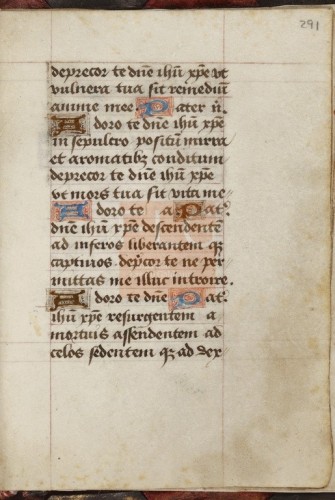 291
deprecor te dne ihu xpe vt
vulnera tua sit remedium
anime mee. Pater n.
Adoro te dne ihu xpe
in sepulcro positum mirra
et aromatibz conditum
deprecor te dne ihu xpe
vt mors tua sit vita me
Adoro te a. Pat.
dne ihu xpe descendente
ad inferos liberantem qz
captiuos. depcor te ne per
mittas me illuc introire.
Adoro te dne Pat.
ihu xpe resurgentem a
mortuis assendentem ad
celos sedentem qz ad dex